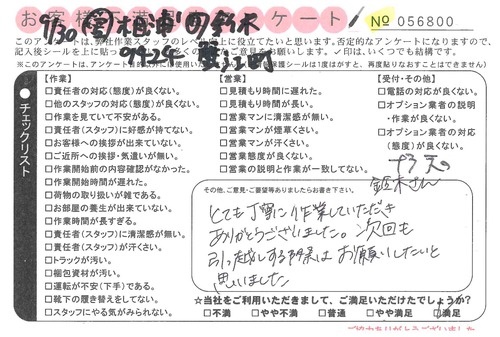 お客様 アンケート! № 056800
9/30 鈴木
9/29
このアンケートは、弊社作業スタッフのレベル向上に役立てたいと思います。否定的なアンケートになりますので、
※このアンケートは、
チェックリスト
【作業】
□責任者の対応(態度)が良くない。
□他のスタッフの対応(態度)が良くない。
□作業を見ていて不安がある。
□責任者(スタッフ)に好感が持てない。
□お客様への挨拶が出来ていない。
□ご近所への挨拶・気遣いが無い。
□作業開始前の内容確認がなかった。
□作業開始時間が遅れた。
□荷物の取り扱いが雑である。
□お部屋の養生が出来ていない。
□作業時間が長すぎる。
□責任者(スタッフ)に清潔感が無い。
□責任者(スタッフ)が汗くさい。
□トラックが汚い。
□梱包資材が汚い。
□運転が不安(下手)である。
□靴下の履き替えをしてない。
□スタッフにやる気がみられない。
【営業】
□見積もり時間に遅れた。
□見積もり時間が長い。
□営業マンに清潔感が無い。
□営業マンが煙草くさい。
□営業マンが汗くさい。
□営業態度が良くない。
□営業の説明と作業が一致してない。
【受付・その他】
□電話の対応が良くない。
□オプション業者の説明
・作業が良くない。
□オプション業者の対応
(態度)が良くない。
鈴木さん
その他、ご意見・ご要望等ありましたらお書き下さい。
とても丁寧に作業していただき
ありがとうございました。次回も
引っ越しする際はお願いしたいと
思いました
☆当社をご利用いただきまして、ご満足いただけたでしょうか?
□不満 □やや不満 □普通 □やや満足 □満足
ご協力ありがとうございました